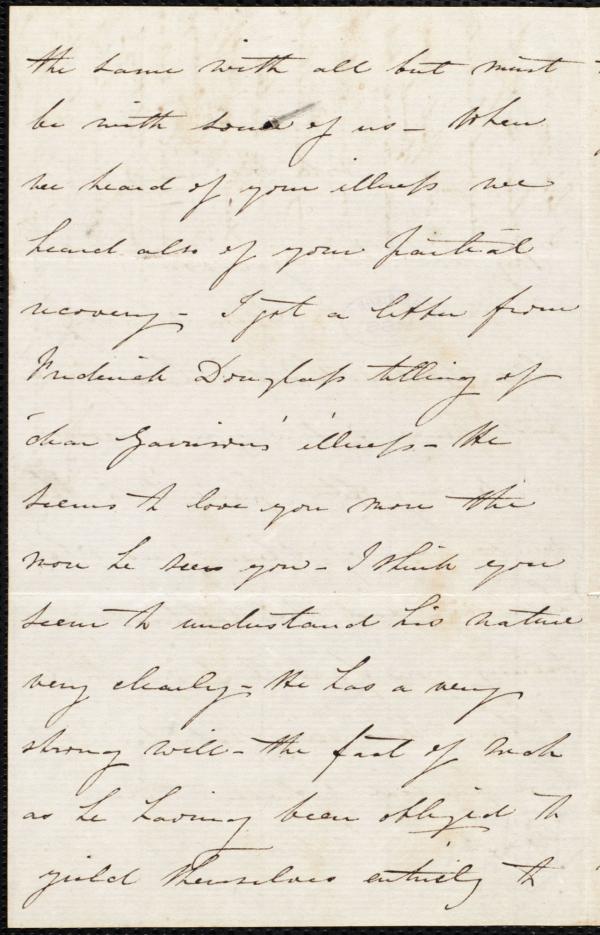 the same with all but must
be with some of us - When
we heard of your illness we
heard also of your partial
recovery - I got a letter from
Frederick Douglass telling of
'dear Garrisons' illness - He
seems to love you more the
more he sees you - I think you
seem to understand his nature
very clearly - He has a very
strong will - the fact of such
as he having been obliged to
yield themselves entirely to